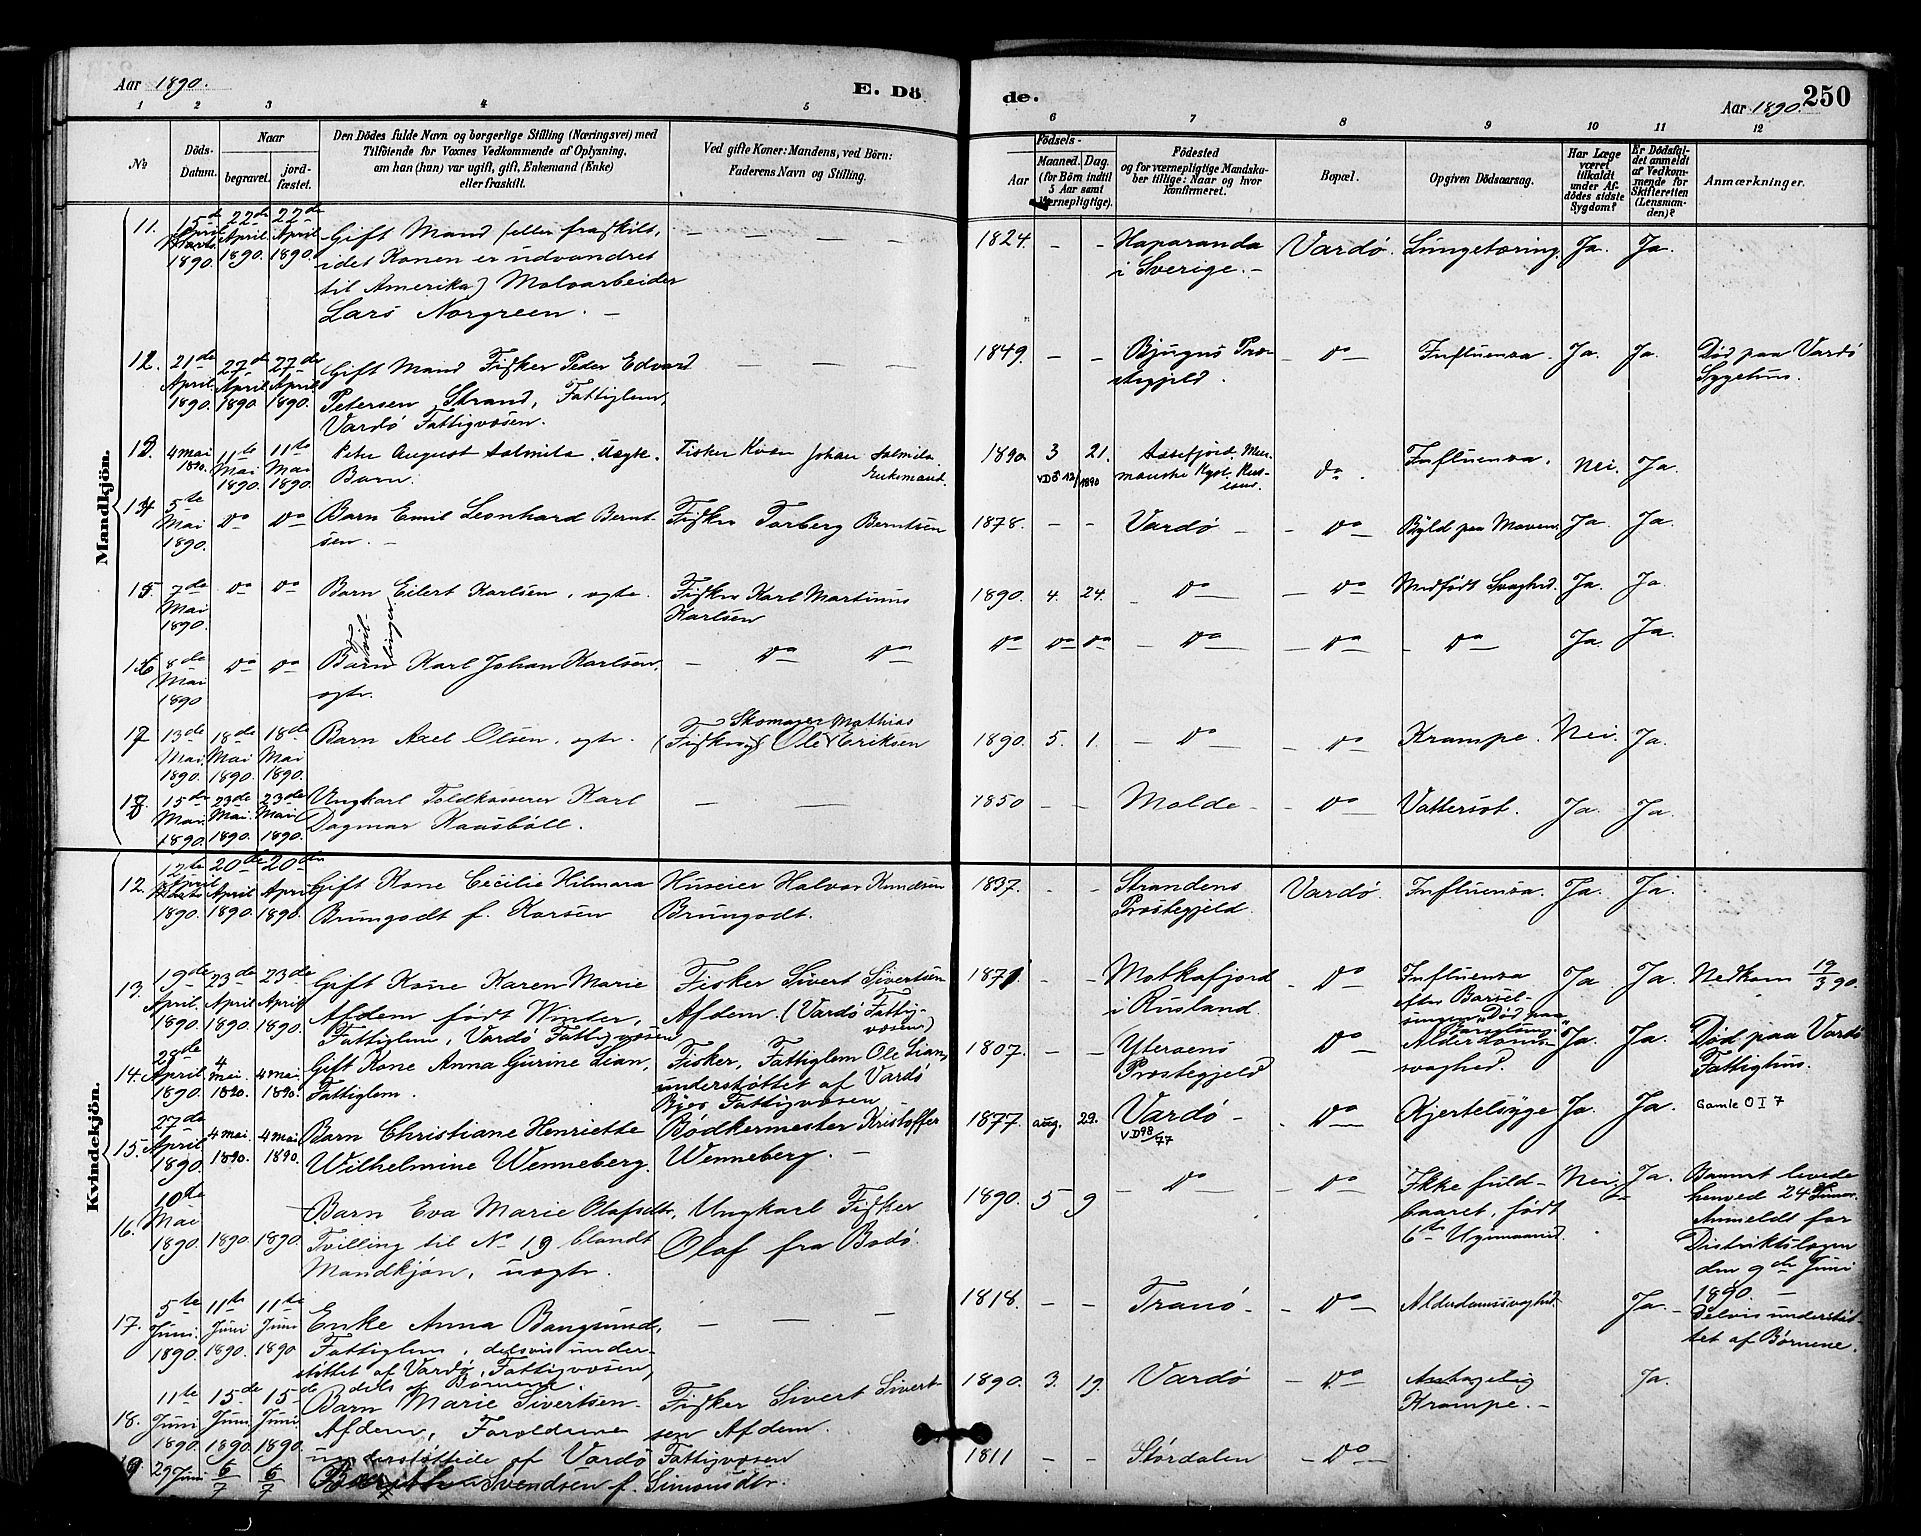 Aar 1890.
E. Dö
1 2 3 4 5
№
Döds-
Datum.
Naar
begravet.
jord-
fæstet.
Den Dödes fulde Navn og borgerlige Stilling (Næringsvei) med
Tilföiende for Voxnes Vedkommende af Oplysning,
om han (hun) var ugift, gift, Enkemand (Enke)
eller fraskilt.
Ved gifte Koner: Mandens, ved Börn:
Faderens Navn og Stilling.
de.
Aar 1890.
250
6 7 8 9 10 11 12
Födsels-
Aar
Maaned. Dag.
(for Börn indtil
5 Aar samt
Værnepligtige).
Födested
og for værnepligtige Mandska-
ber tillige: Naar og hvor
konfirmeret.
Bopæl.
Opgiven Dödsaarsag.
Har Læge
været
tilkaldt
under Af-
dödes sidste
Sygdom?
Er Dödsfal-
det anmeldt
af Vedkom-
mende for
Skifteretten
(Lensman-
den)?
Anmærkninger.
Mandkjön.
11. 15de April 1890. 22de April 1890. 27de April 1890.
Gift Mand (eller fraskilt,
idet Konen er udvandret
til Amerika) Moloarbeider
Lars Norgreen. —
1824. - - Haparanda
i Sverige. -
Vardö. Lungetæring. Ja. Ja.
12. 21de April 1890. 27de April 1890. 27de April 1890.
Gift Mand Fisker Peder Edvard
Petersen Strand, Fattiglem,
Vardö Fattigvæsen.
1849. - - Bjugns Præ-
stegjeld.
Do Influenza. Ja. Ja. Död paa Vardö
Sygehus.
13. 4 mai 1890. 11te Mai 1890. 11te Mai 1890.
Peter August Salmila. Uægte.
Barn.
Fisker Kvæn Johan Salmila
Enkemand.
1890 3 21.
VD 5 12/1890
do. Influenza. Nei. Ja.
14 5te Mai 1890. Do Do
Barn Emil Leonhard Bernt-
sen. -
Fisker Torberg Berntsen
1878. - - Vardö - Do Byld paa Maven. Ja. Ja.
15 7de Mai 1890. Do Do
Barn Eilert Karlsen, ægte.
Fisker Karl Martinus
Karlsen
1890. 4. 24. Do Do Medfödt Svaghed. Ja. Ja
Tvil-
linger
16 8de Mai 1890 Do Do
Barn Karl Johan Karlsen,
ægte.
Do Do
Do Do Do Do Do Do Ja. Ja.
17 13de Mai 1890. 18de Mai 1890. 18de Mai 1890.
Barn Axel Olsen, ægte.
Skomager Mathias
(Fisker) Ole Eriksen
1890. 5. 1. Do Do Krampe. Nei. Ja.
18. 15de Mai 1890. 23de Mai. 1890. 23de Mai 1890.
Ungkarl Toldkasserer Karl
Dagmar Kaasböll.
1850 - - Molde - Do Vattersot. Ja. Ja.
Kvindekjön.
12. 12te April 1890. 20de April 1890. 20de April 1890.
Gift Kone Cecilie Hilmara
Brungodt f. Korsen
Huseier Halvor Knudsen
Brungodt.
1837. - - Strandens
Præstegjeld.
Vardö. Influenza. Ja. Ja.
13. 19de April. 1890. 23de April 1890. 23de April 1890.
Gift Kone Karen Marie
Afdem födt Winter,
Fattiglem, Vardö Fattigvæsen,
Fisker Sivert Sivertsen
Afdem. (Vardö Fattig-
væsen)
1871 - - Motkafjord
i Rusland.
Do Influenza
efter Barsel-
Ja Ja. Nedkom 19/3 90.
14. 28de April 1890. 4 mei. 1890. 4 mai 1890.
Gift Kone Anna Gurine Lian,
Fattiglem.
Fisker, Fattiglem Ole Lian,
understöttet af Vardö
Byes Fattigvæsen
1807. - - Ytteröens
Præstegjeld
Do Alderdoms-
svaghed.
Ja. Ja. Död paa Vardö
Fattighus.
15. 27de April 1890. 4 mai 1890. 4 mai 1890.
Barn Christiane Henriette
Wilhelmine Wenneberg.
Bödkermester Kristoffer
Wenneberg. -
1877. aug. 29. Vardö -
VD 98/77
Do Kjertelsyge Ja. Ja. Gamle O I 7
16. 10de Mai 1890. 1890. 1890.
Barn Eva Marie Olafsdtr,
Tvilling til No 19 blandt
Mandkjön, uægte.
Ungkarl Fisker
Olaf fra Bodö.
1890. 5 9 Do Do Ikke fuld-
baaret, födt
Nei. Ja. Barnet levede
henved 24 Timer.
Anmeldt for
Distriktslægen
den 9de Juni
1890. -
17. 5te Juni 1890. 11te Juni 1890. 11te Juni 1890
Enke Anna Bangsund,
Fattiglem, delvis under-
stöttet af Vardö Fattigvæsen,
dels af Börnene.
1818. - - Tranö - Do Alderdomssvaghed. Ja. Delvis understöt-
tet af Börnene.
18. 11te Juni 1890. 15de Juni 1890. 15de Juni 1890.
Barn Marie Sivertsen
Afdem, Forældrene
understöttede af Vardö Fattigvæsen
Fisker Sivert Sivert-
sen Afdem.
1890. 3. 19. Vardö Do Antagelig
Krampe. -
Ja.
19. 29 Juni 6/7 6/7
Svendsen f. Simonsdtr.
1811 - - Stördalen Do